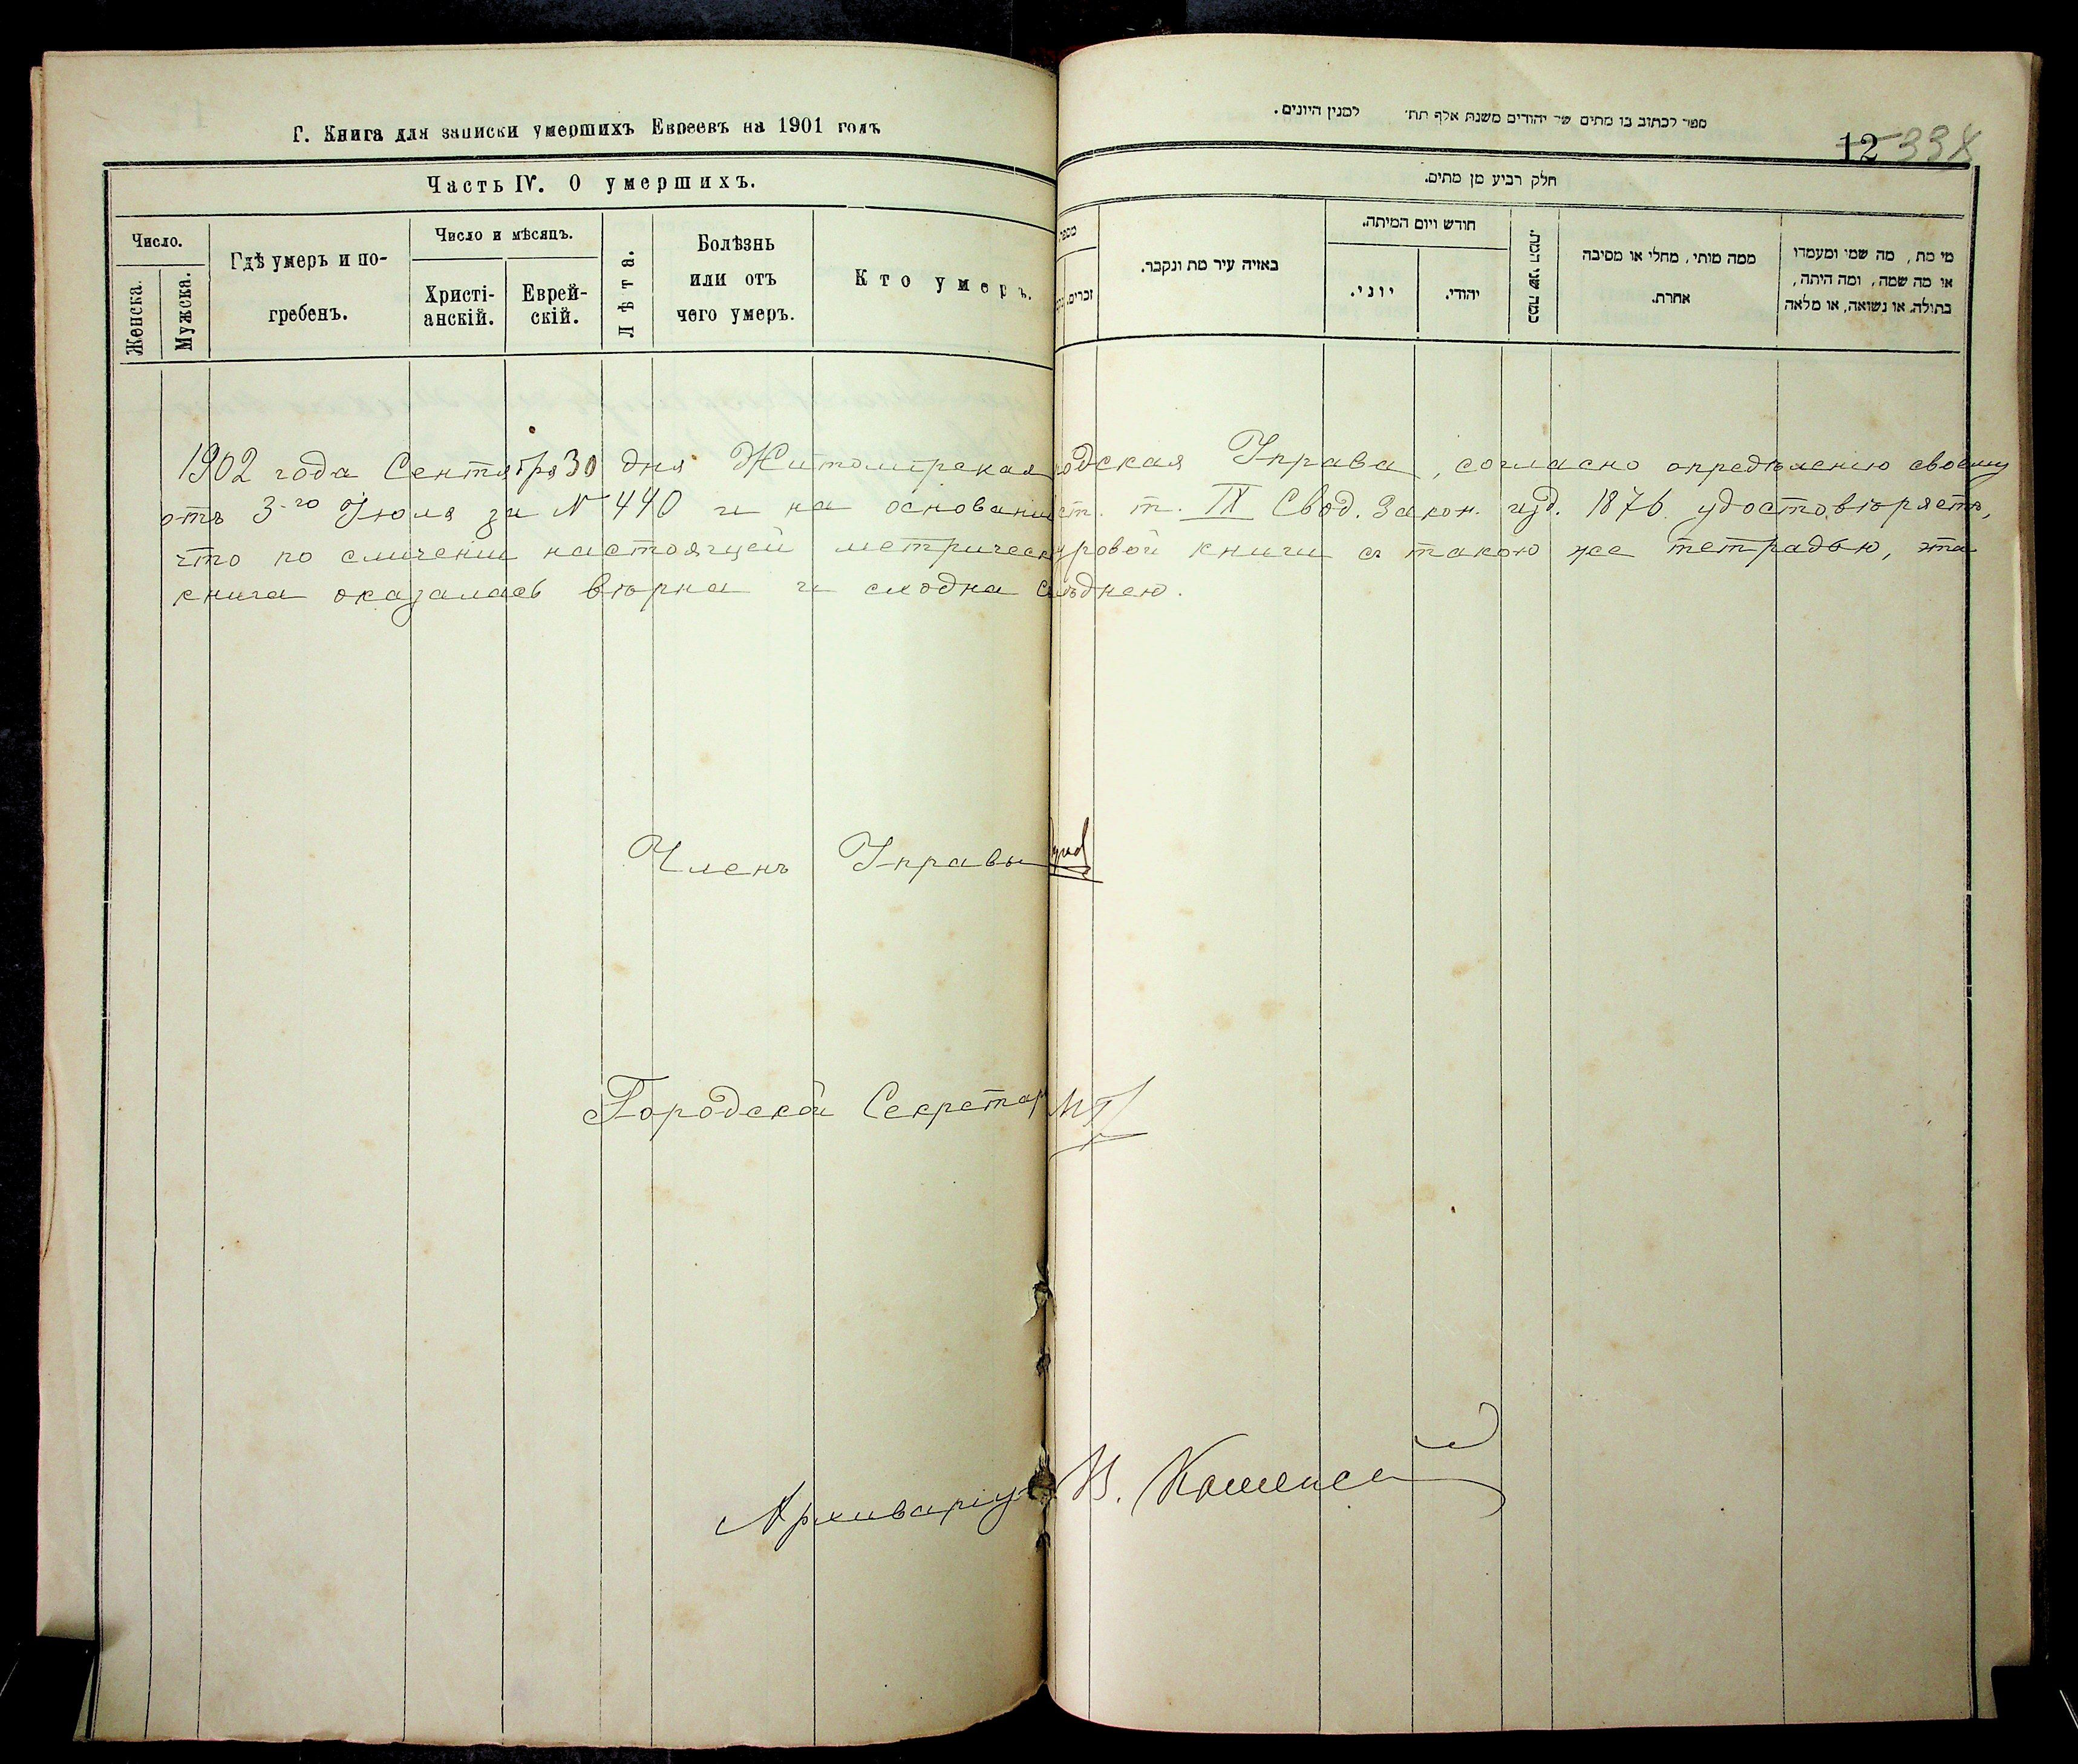 Г. Книга для записки умершихъ Евреевъ на 1901 годъ
Часть IV. О умершихъ.
Число.
Женска.
Мужска.
Гдѣ умеръ и по-
гребенъ.
Число и мѣсяцъ.
Христі-
анскій.
Еврей-
скій.
Лѣта.
Болѣзнь
или отъ
чего умеръ.
Кто умеръ.
ספר לכתוב בו מתים של יהודים משנת אלף תת׳ למנין היונים.
12 338
חלק רביע מן מתים.
מספר
זכרים.
באיזה עיר מת ונקבר.
חודש ויום המיתה.
יוני.
יהודי.
כמה שני המת.
ממה מותו, מחלי או מסיבה
אחרת.
מי מת, מה שמו ומעמדו
או מה שמה, ומה היתה,
בתולה, או נשואה, או מלאה
1902 года Сентября 30 дня Житомірская одская Управа, согласно опредѣленію своему
отъ 3-го Іюля за № 440 и на основаніи ст. т. IX Свод. Закон. изд. 1876 удостовѣряетъ,
что по сличеніи настоящей метрическ уровой книги съ такою же тетрадью, эта
книга оказалась вѣрна и сходна съ послѣднею.
Членъ Управы
Городской Секретар
Архиваріус В.